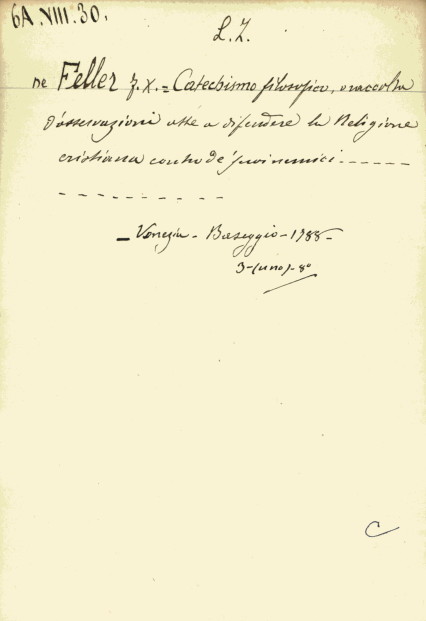 6A.VIII.30.
L.Z.
ne Feller f.x. = Catechismo filosofico, o raccolta
d'osservazioni atte a difendere la Religione
cristiana contro de' suoi nemici ------
----------
- Venezia - Baseggio - 1788 -
3 - (uno) - 8º
C